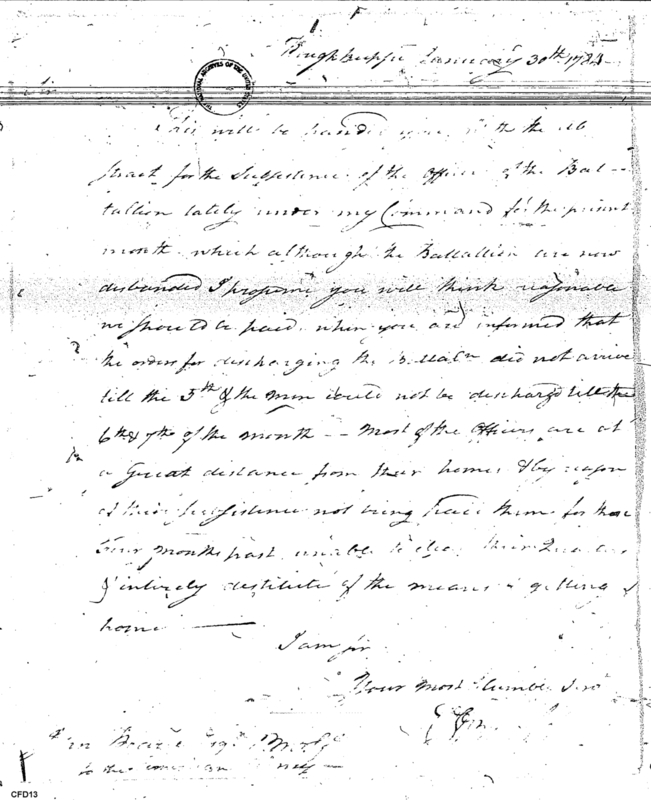 Poughkeepsie January 30th 1782
NATIONAL ARCHIVES OF THE UNITED STATES
Sir
This will be handed you with the Ab
stract for the Subsistence of the Officers of the Bat-
tallion lately under my Command for the present
month which although the Battallion are now
disbanded I propose you will think reasonable
we should be paid when you are informed that
the orders for discharging the Battaln did not arrive
till the 5th & the men could not be discharg'd till the
6th & 7th of the month -- Most of the Officers are at
a Great distance from their homes & by reason
of their Subsistence not being paid them for
Four months past unable to clear their
& intirely destitute of the means of getting
home —
I am sir
Your most humbe Serv
Esqr
to the
CFD13